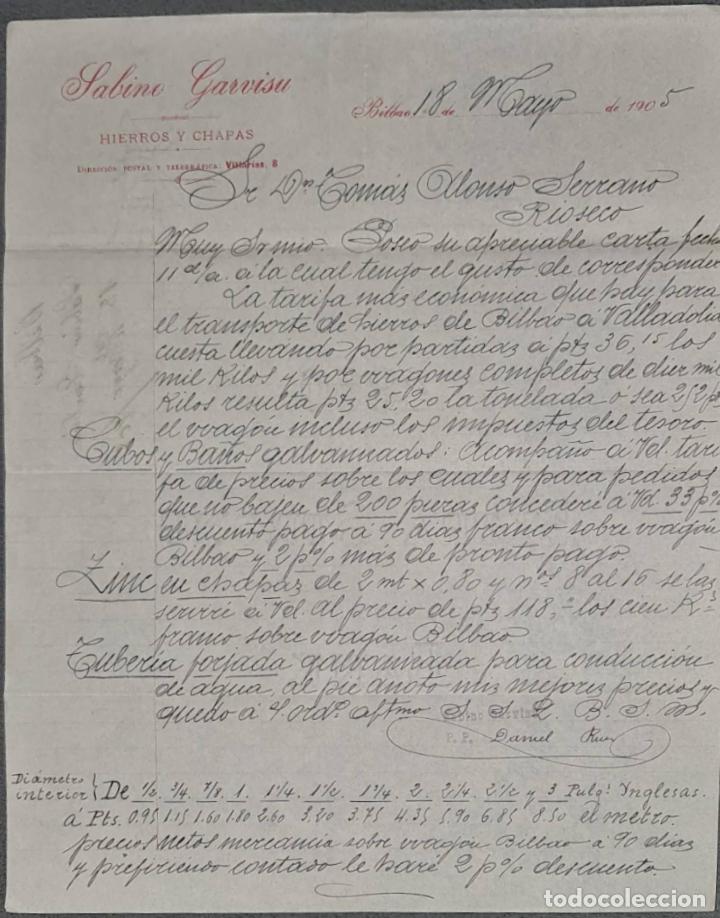 Sabino Garvisu
HIERROS Y CHAPAS
DIRECCIÓN POSTAL Y TELEGRÁFICA: Villarias, 8
Bilbao 18 de Mayo de 1905
Sr Dn Tomás Alonso Serrano
Rioseco
Muy Sr mio. Poseo su apreciable carta fecha
11 d/a. á la cual tengo el gusto de corresponder
La tarifa más económica que hay para
el transporte de hierros de Bilbao á Valladolid
cuesta llevando por partidas á ptz 36,15 los
mil Kilos y por vvagones completos de diez mil
Kilos resulta ptz 25,20 la tonelada ó sea 252 pt
el vvagón incluso los impuestos del tesoro.
Cubos y Baños galvanizados: acompaño á Vd. tari
fa de precios sobre los cuales y para pedidos
que no bajen de 200 piezas concederé á Vd. 33 p%
descuento pago á 90 dias franco sobre vvagón
Bilbao y 2 p% más de pronto pago.
Zinc en chapas de 2 mt x 0,80 y nos 8 al 16 se las
serviré á Vd. al precio de ptz 118,= los cien Ks
franco sobre vvagón Bilbao
Tubería forjada galvanizada para conducción
de agua, al pié anoto mis mejores precios y
quedo á s. ord. aftmo S. S. Q. B. S. M.
P. P. Daniel Ruiz
Diámetro
interior } De 1/2 3/4 7/8 1. 1 1/4 1 1/2 1 3/4 2. 2 1/4 2 1/2 y 3 Pulgs. Ynglesas.
á Pts. 0.95 1.15 1.60 1.80 2.60 3.20 3.75 4.35 5.90 6.85 8.50 el métro.
precios netos mercancia sobre vvagón Bilbao á 90 dias
y prefiriendo contado le haré 2 p% descuento.
todocoleccion